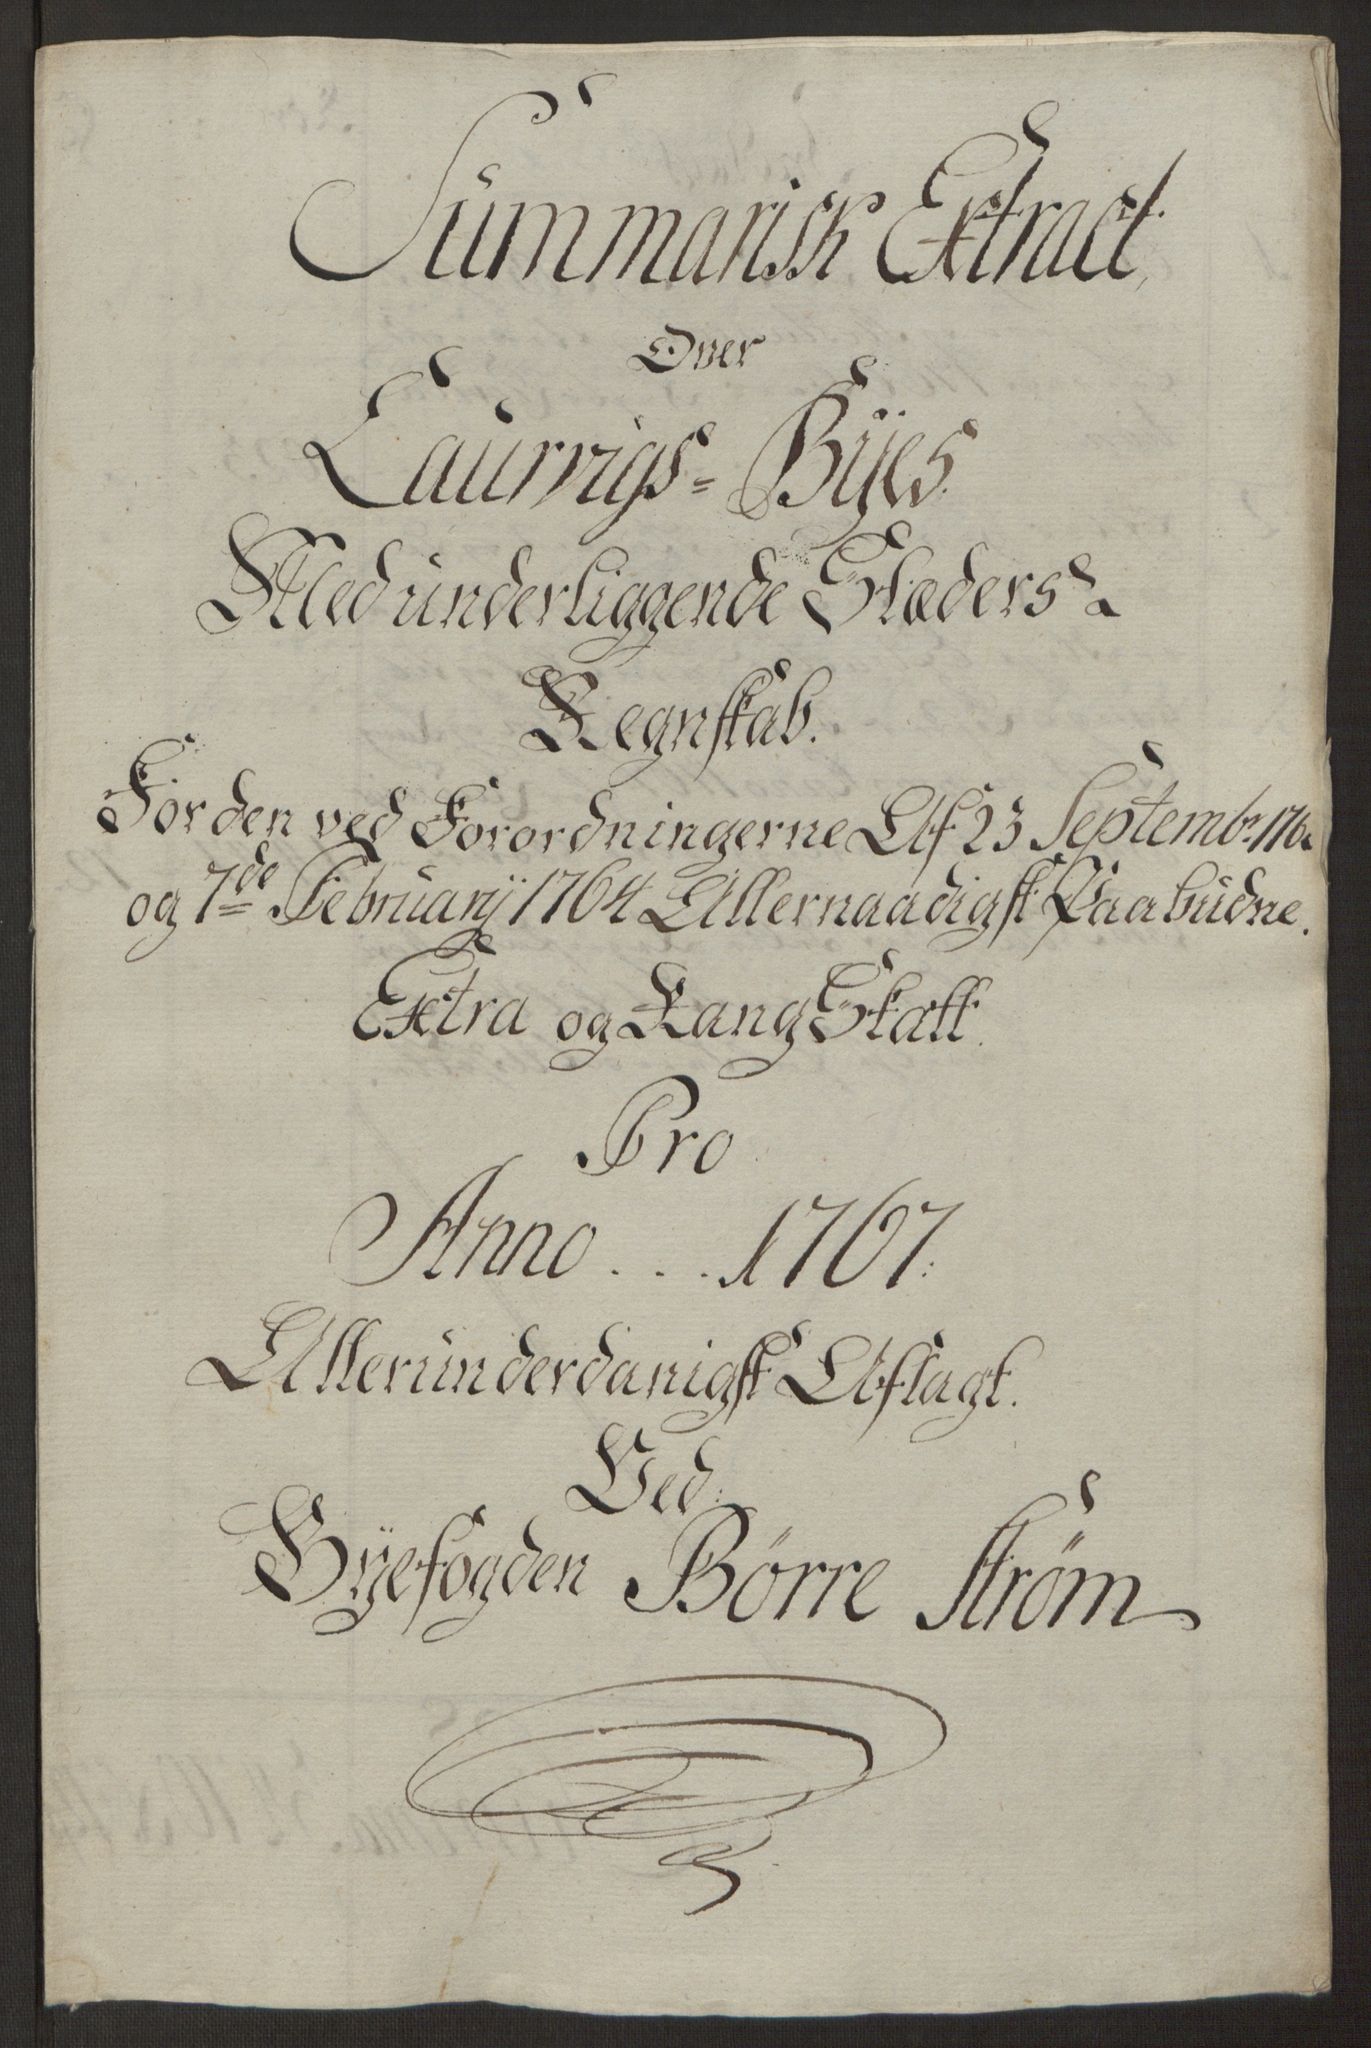 Summarisk Extract
Over
Laurvigs=Bÿes
Med underliggende Stæders
Regnskab.
For den ved Forordningerne Af 23 Septembr. 176
og 7de Februarÿ 1764 Allernaadigst Paabudne.
Extra og Rang Skatt.
Pro
Anno . . . 1767.
Allerunderdanigst Aflagt.
Ved
Bÿefogden Børre Strøm